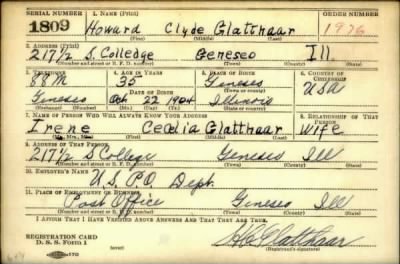 SERIAL NUMBER 1. NAME (Print) ORDER NUMBER
1809 Howard Clyde Glatthaar 1976
(First) (Middle) (Last)
2. ADDRESS (Print)
217½ S. Colledge Geneseo Ill.
(Number and street or R. F. D. number) (Town) (County) (State)
3. TELEPHONE 4. AGE IN YEARS 5. PLACE OF BIRTH 6. COUNTRY OF CITIZENSHIP
88M 35 Geneseo
(Town or county)
DATE OF BIRTH USA
Geneseo Oct 22 1904 Illinois
(Exchange) (Number) (Mo.) (Day) (Yr.) (State or country)
7. NAME OF PERSON WHO WILL ALWAYS KNOW YOUR ADDRESS 8. RELATIONSHIP OF THAT PERSON
Irene Cecelia Glatthaar Wife
(Mr., Mrs., Miss) (First) (Middle) (Last)
9. ADDRESS OF THAT PERSON
217½ S College Geneseo Ill
(Number and street or R. F. D. number) (Town) (County) (State)
10. EMPLOYER'S NAME
U.S. P.O. Dept.
11. PLACE OF EMPLOYMENT OR BUSINESS
Post Office Geneseo Ill
(Number and street or R. F. D. number) (Town) (County) (State)
I AFFIRM THAT I HAVE VERIFIED ABOVE ANSWERS AND THAT THEY ARE TRUE.
REGISTRATION CARD
D. S. S. Form 1 H C Glatthaar
(Registrant's signature)